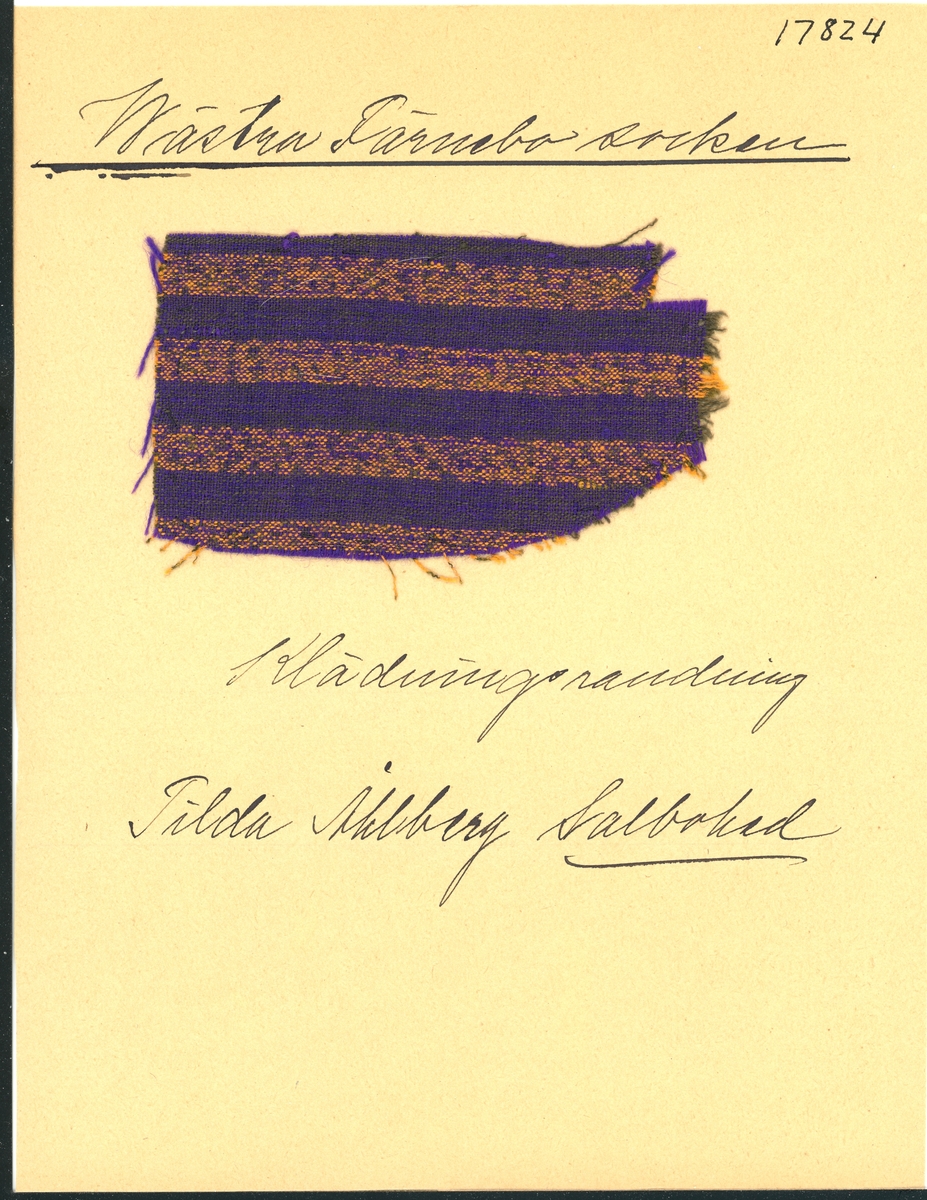 17824
Wästra Färnebo socken
Klädningsrandning
Tilda Åhlberg Salbohed